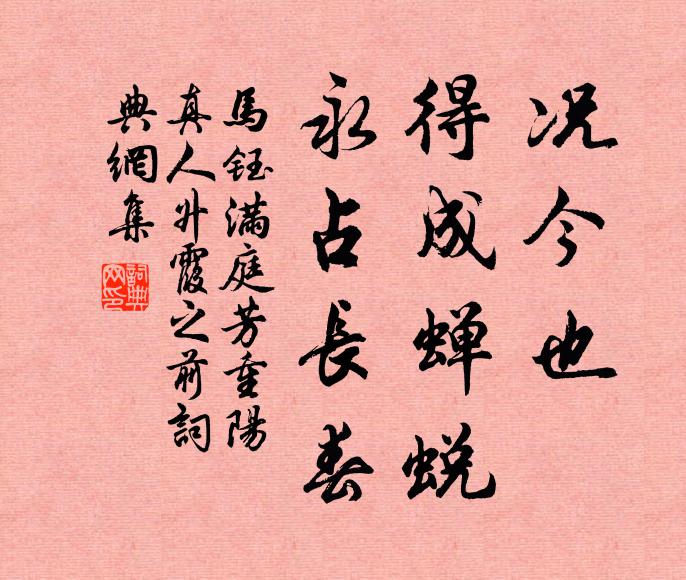 况今也
得成蝉蜕
永占長春
馬鈺满庭芳重陽
真人升霞之前詞
典網集
詞典网印